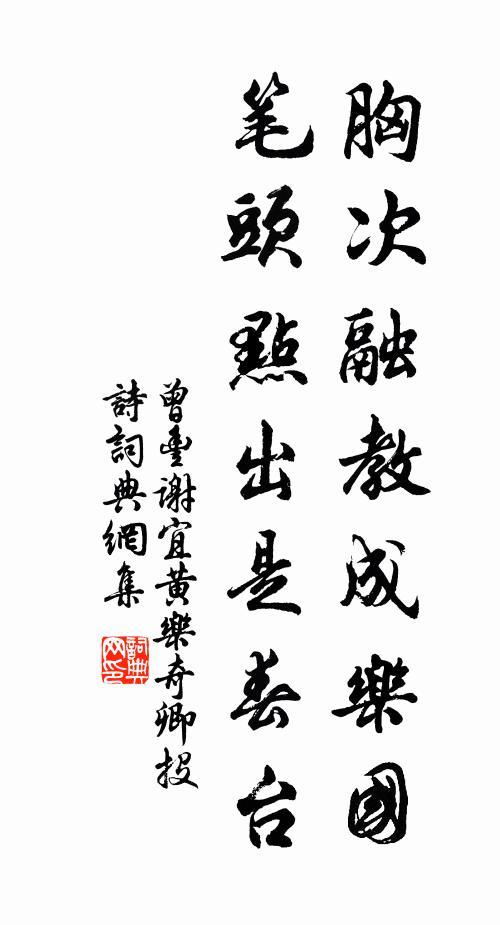 胸次融教成樂國
笔頭點出是春台
曾豐谢宜黄樂奇卿投
詩詞典網集
詞典网印